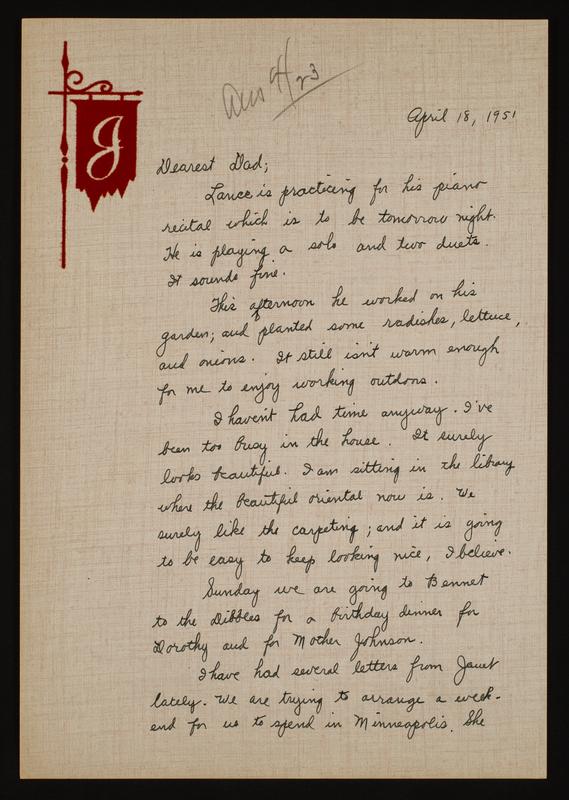 J
Ans 4/23
April 18, 1951
Dearest Dad;
Lance is practicing for his piano
recital which is to be tomorrow night.
He is playing a solo and two duets.
It sounds fine.
This afternoon he worked on his
garden; and planted some radishes, lettuce,
and onions. It still isn't warm enough
for me to enjoy working outdoors.
I haven't had time anyway. I've
been too busy in the house. It surely
looks beautiful. I am sitting in the library
where the beautiful oriental now is. We
surely like the carpeting; and it is going
to be easy to keep looking nice, I believe.
Sunday we are going to Bennet
to the Dibbles for a birthday dinner for
Dorothy and for Mother Johnson.
I have had several letters from Janet
lately. We are trying to arrange a week-
end for us to spend in Minneapolis. She